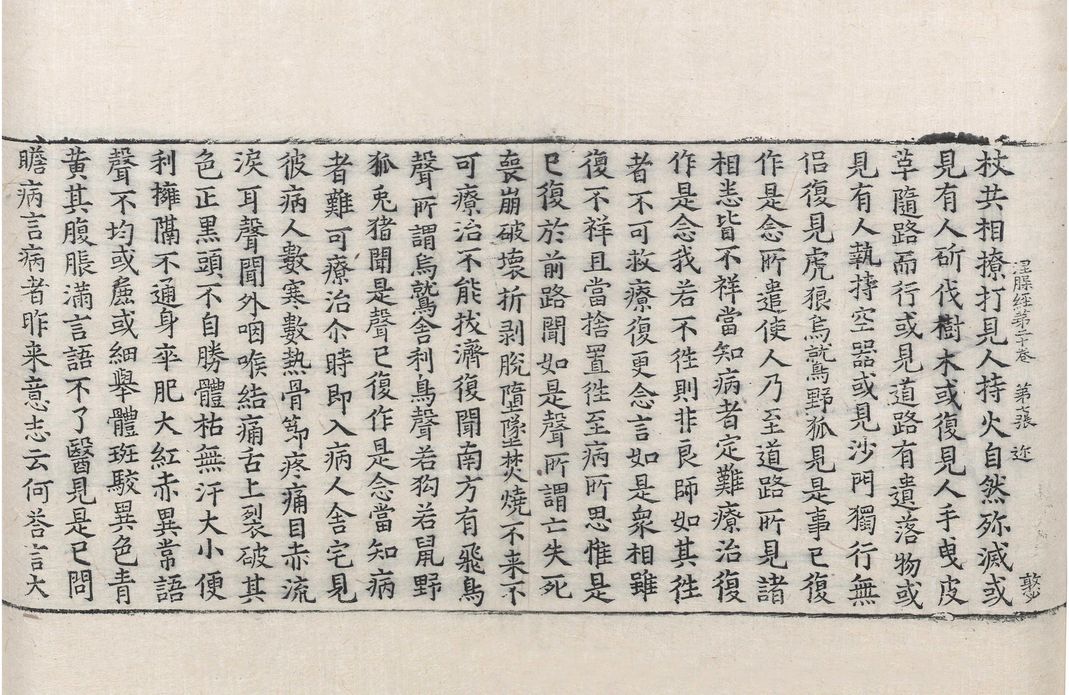 涅槃經第二十卷　第七張　迩　敦少
杖共相撩打見人持火自然殄滅或
見有人斫伐樹木或復見人手曳皮
草隨路而行或見道路有遺落物或
見有人執持空器或見沙門獨行無
侣復見虎狼烏鷲野狐見是事已復
作是念所遣使人乃至道路所見諸
相悉皆不祥當知病者定難療治復
作是念我若不徃則非良師如其徃
者不可救療復更念言如是衆相雖
復不祥且當捨置徃至病所思惟是
已復於前路聞如是聲所謂亡失死
喪崩破壞折剥脫墮墜焚燒不来不
可療治不能拔濟復聞南方有飛鳥
聲所謂烏鷲舎利鳥聲若狗若鼠野
狐兎猪聞是聲已復作是念當知病
者難可療治尒時即入病人舎宅見
彼病人數寒數熱骨節疼痛目赤流
淚耳聲聞外咽喉結痛舌上裂破其
色正黒頭不自勝體枯無汗大小便
利擁隔不通身卒肥大紅赤異常語
聲不均或麁或細舉體斑駮異色青
黄其腹脹滿言語不了醫見是已問
瞻病言病者昨来意志云何荅言大